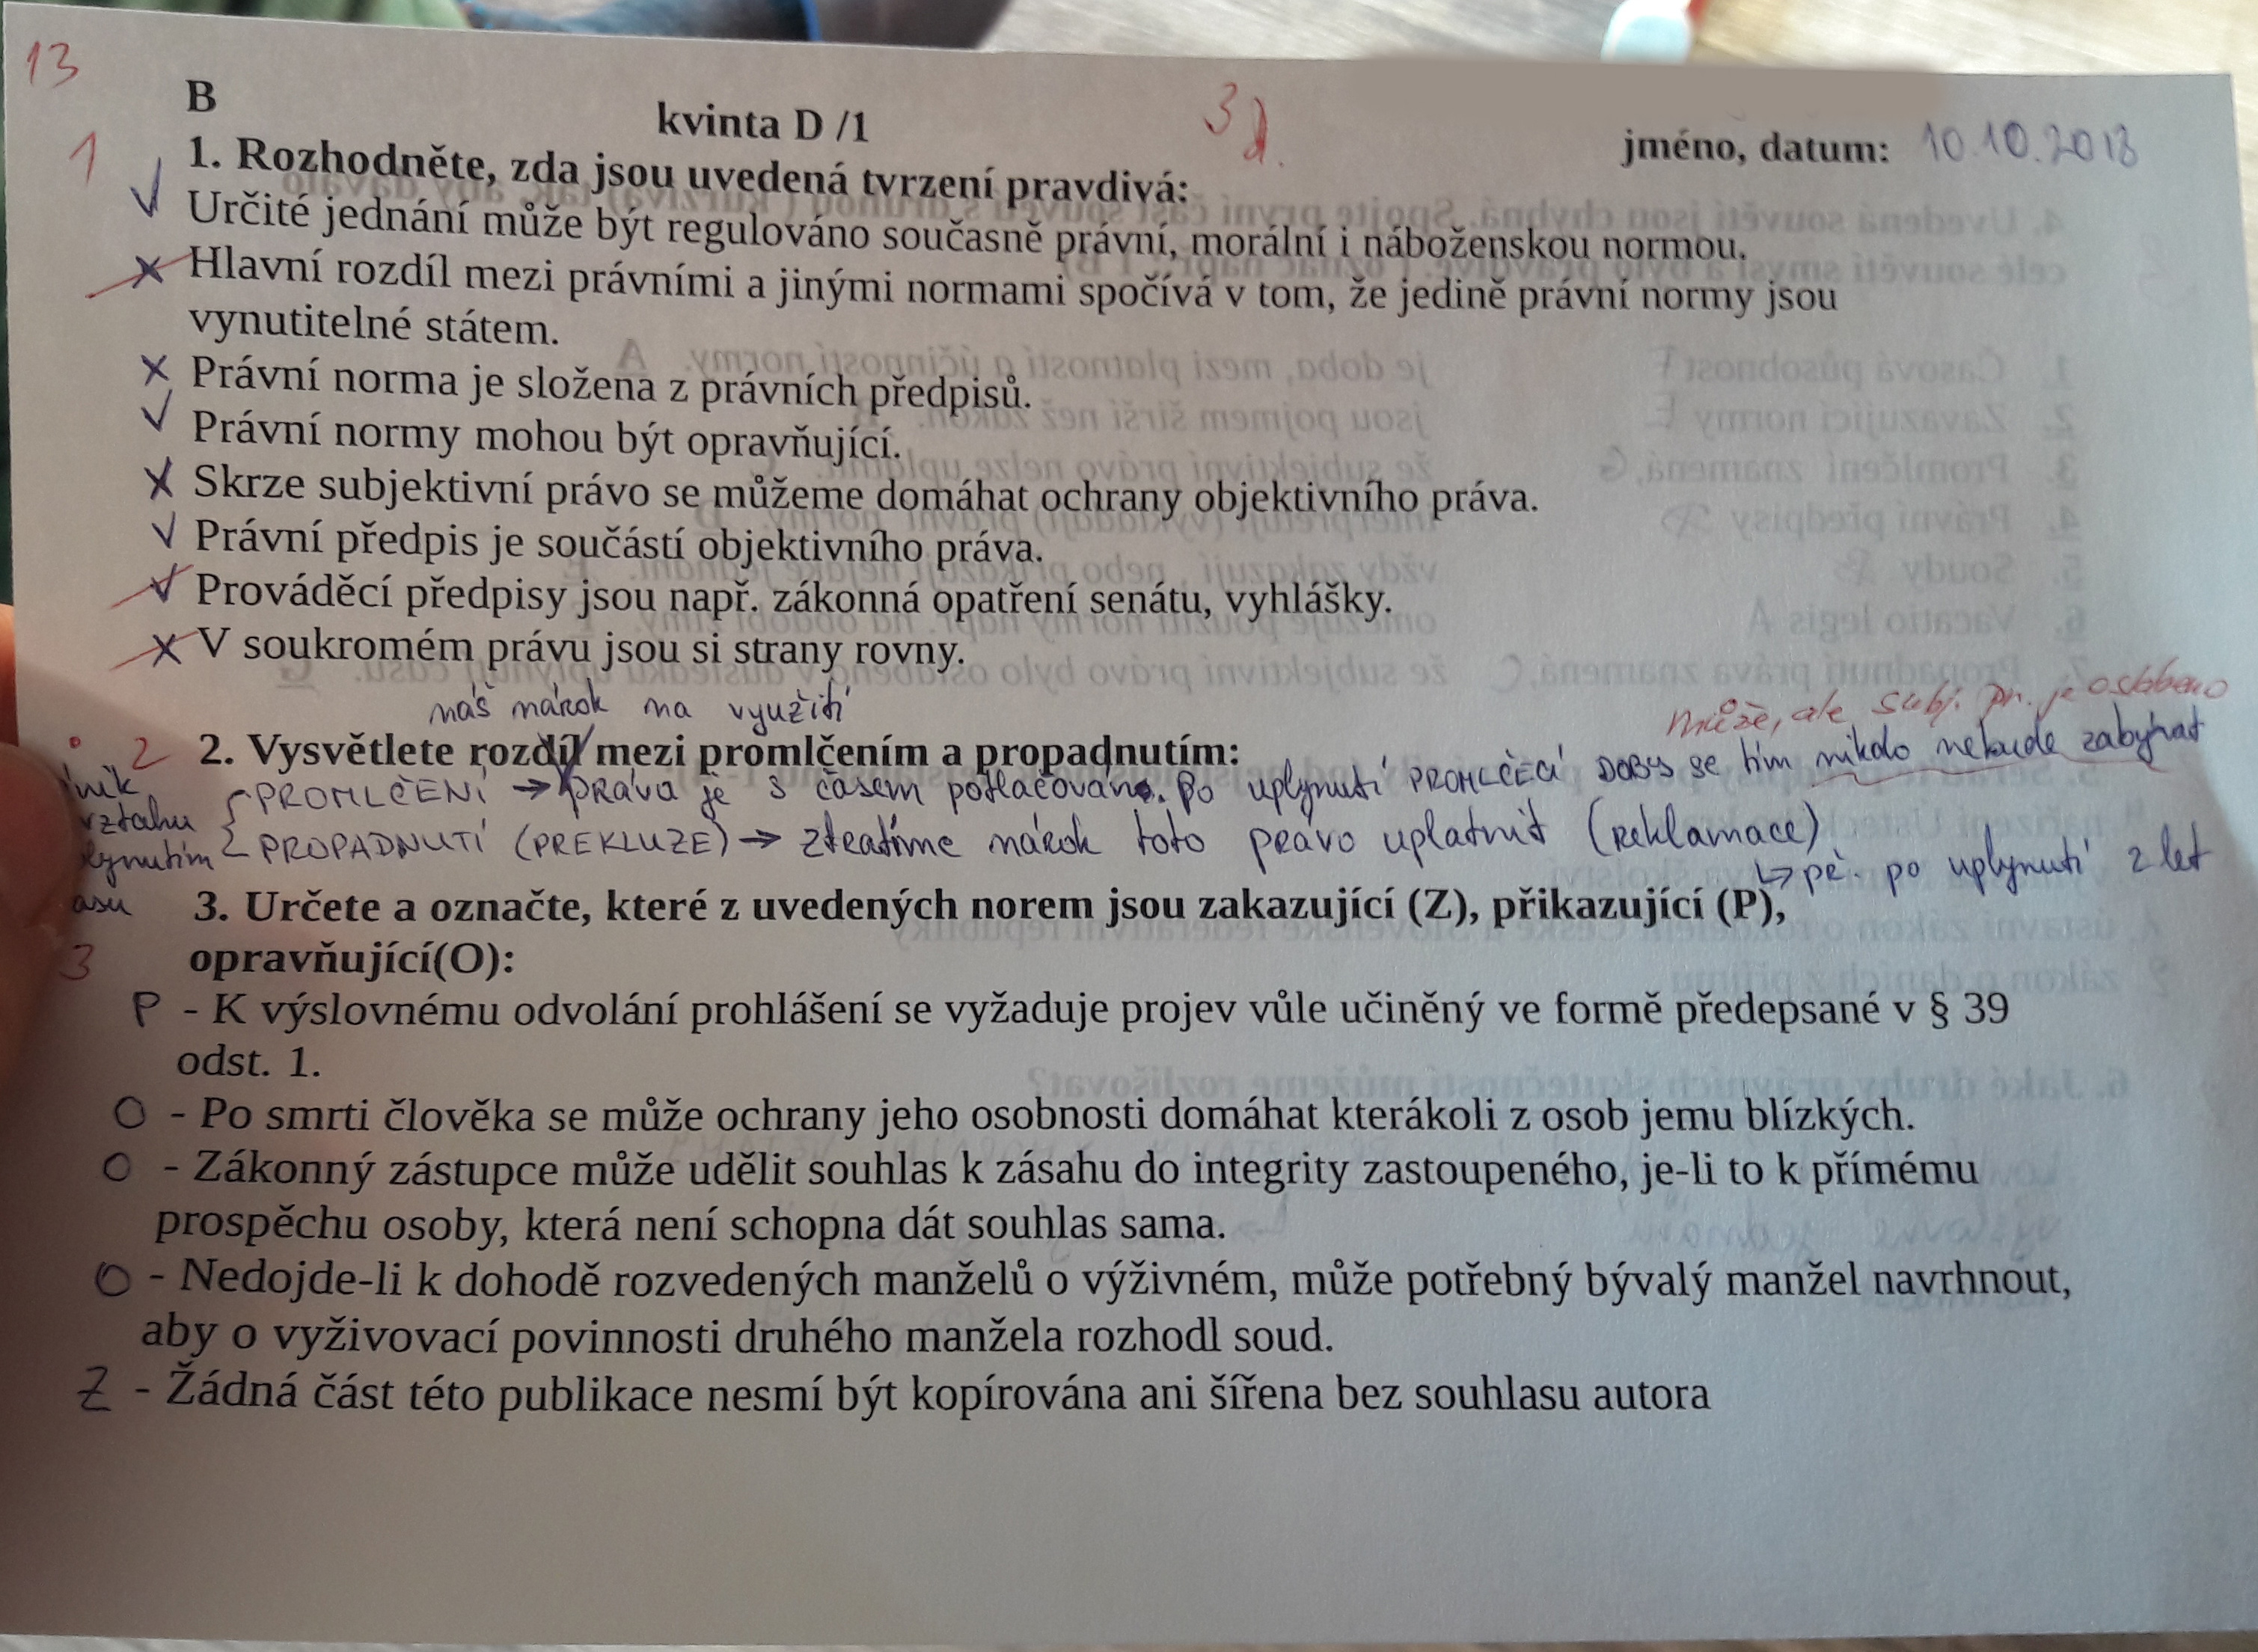 13
B
kvinta D /1
3
jméno, datum: 10.10.2018
1
1. Rozhodněte, zda jsou uvedená tvrzení pravdivá:
✓ Určité jednání může být regulováno současně právní, morální i náboženskou normou.
× Hlavní rozdíl mezi právními a jinými normami spočívá v tom, že jedině právní normy jsou
vynutitelné státem.
× Právní norma je složena z právních předpisů.
✓ Právní normy mohou být opravňující.
× Skrze subjektivní právo se můžeme domáhat ochrany objektivního práva.
✓ Právní předpis je součástí objektivního práva.
✓ Prováděcí předpisy jsou např. zákonná opatření senátu, vyhlášky.
× V soukromém právu jsou si strany rovny.
náš nárok na využití
může, ale subj. pr. je oslabeno
2 2. Vysvětlete rozdíl mezi promlčením a propadnutím:
PROMLČENÍ → práva je s časem potlačováno. Po uplynutí PROMLČECÍ DOBY se tím nikdo nebude zabývat
vztahu
PROPADNUTÍ (PREKLUZE) → ztratíme nárok toto právo uplatnit (reklamace)
↳ př. po uplynutí 2 let
3. Určete a označte, které z uvedených norem jsou zakazující (Z), přikazující (P),
3 opravňující(O):
P - K výslovnému odvolání prohlášení se vyžaduje projev vůle učiněný ve formě předepsané v § 39
odst. 1.
O - Po smrti člověka se může ochrany jeho osobnosti domáhat kterákoli z osob jemu blízkých.
O - Zákonný zástupce může udělit souhlas k zásahu do integrity zastoupeného, je-li to k přímému
prospěchu osoby, která není schopna dát souhlas sama.
O - Nedojde-li k dohodě rozvedených manželů o výživném, může potřebný bývalý manžel navrhnout,
aby o vyživovací povinnosti druhého manžela rozhodl soud.
Z - Žádná část této publikace nesmí být kopírována ani šířena bez souhlasu autora